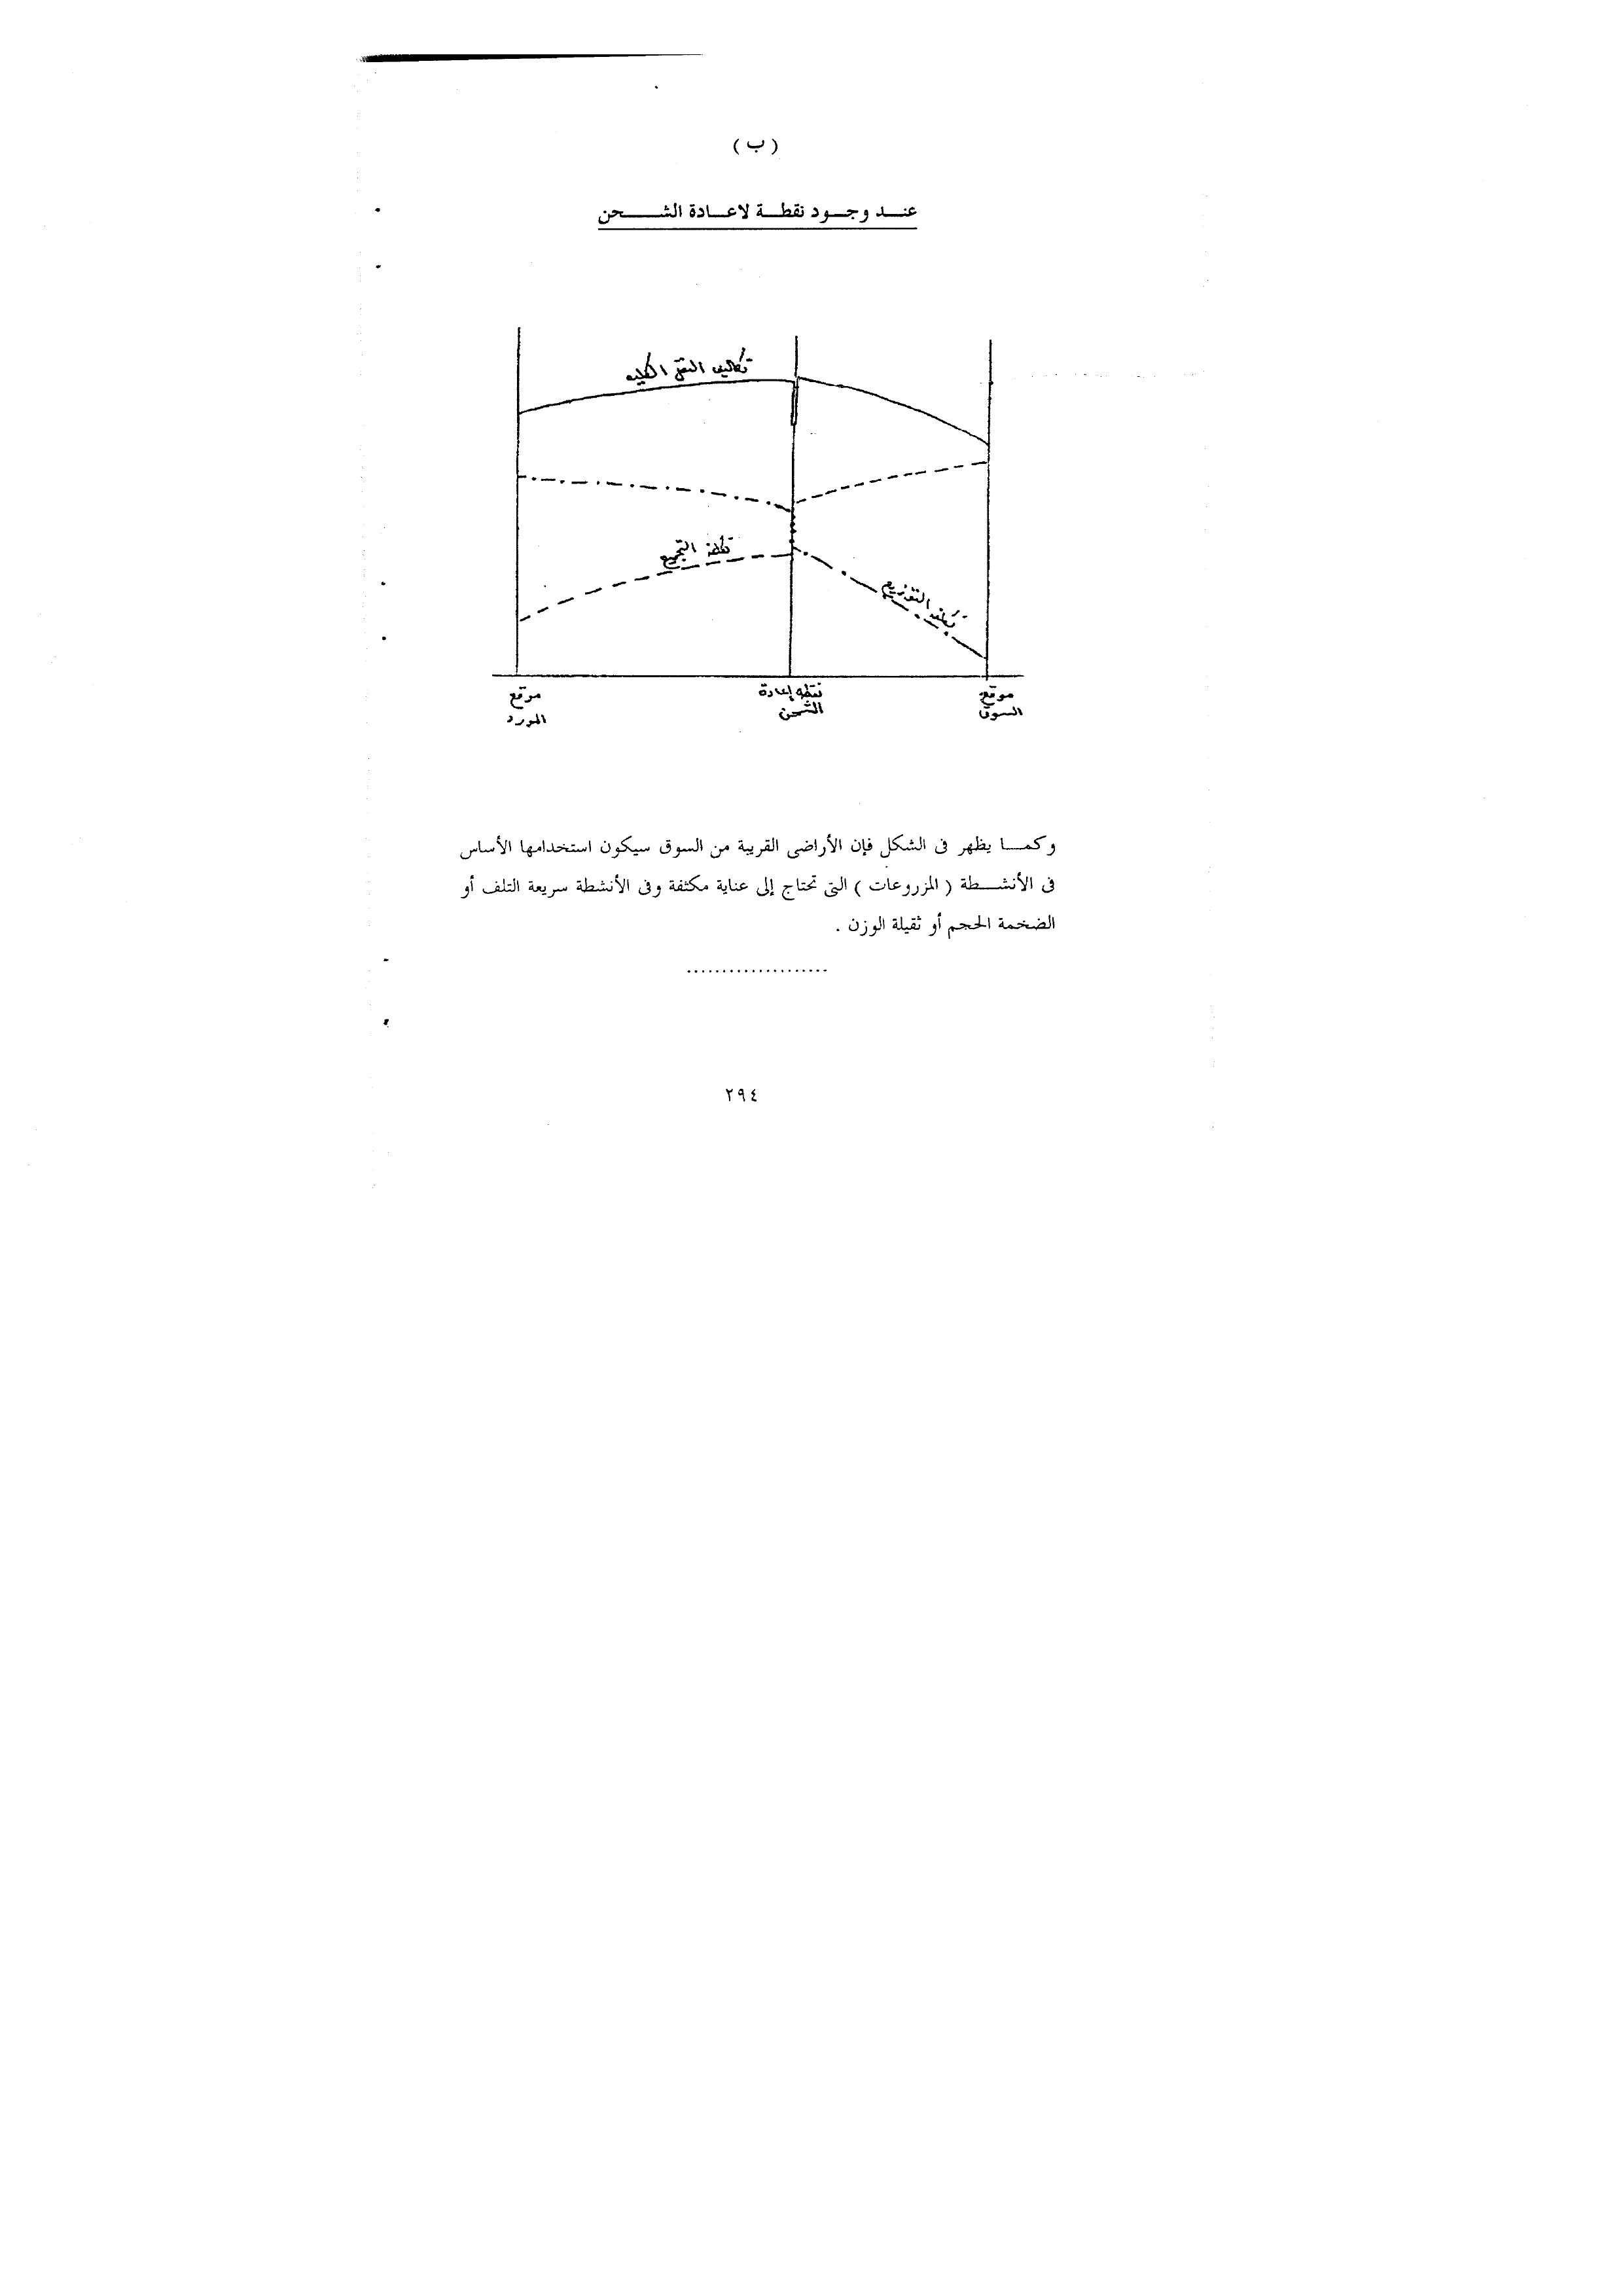 ( ب )
عند وجود نقطة لاعادة الشحن
تكاليف النقل الكليه
تكلفة التجميع
تكلفة التوزيع
موقع
المورد
نقطه إعادة
الشحن
موقع
السوق
وكما يظهر فى الشكل فإن الأراضى القريبة من السوق سيكون استخدامها الأساس
فى الأنشطة ( المزروعات ) التى تحتاج إلى عناية مكثفة وفى الأنشطة سريعة التلف أو
الضخمة الحجم أو ثقيلة الوزن .
....................
٢٩٤